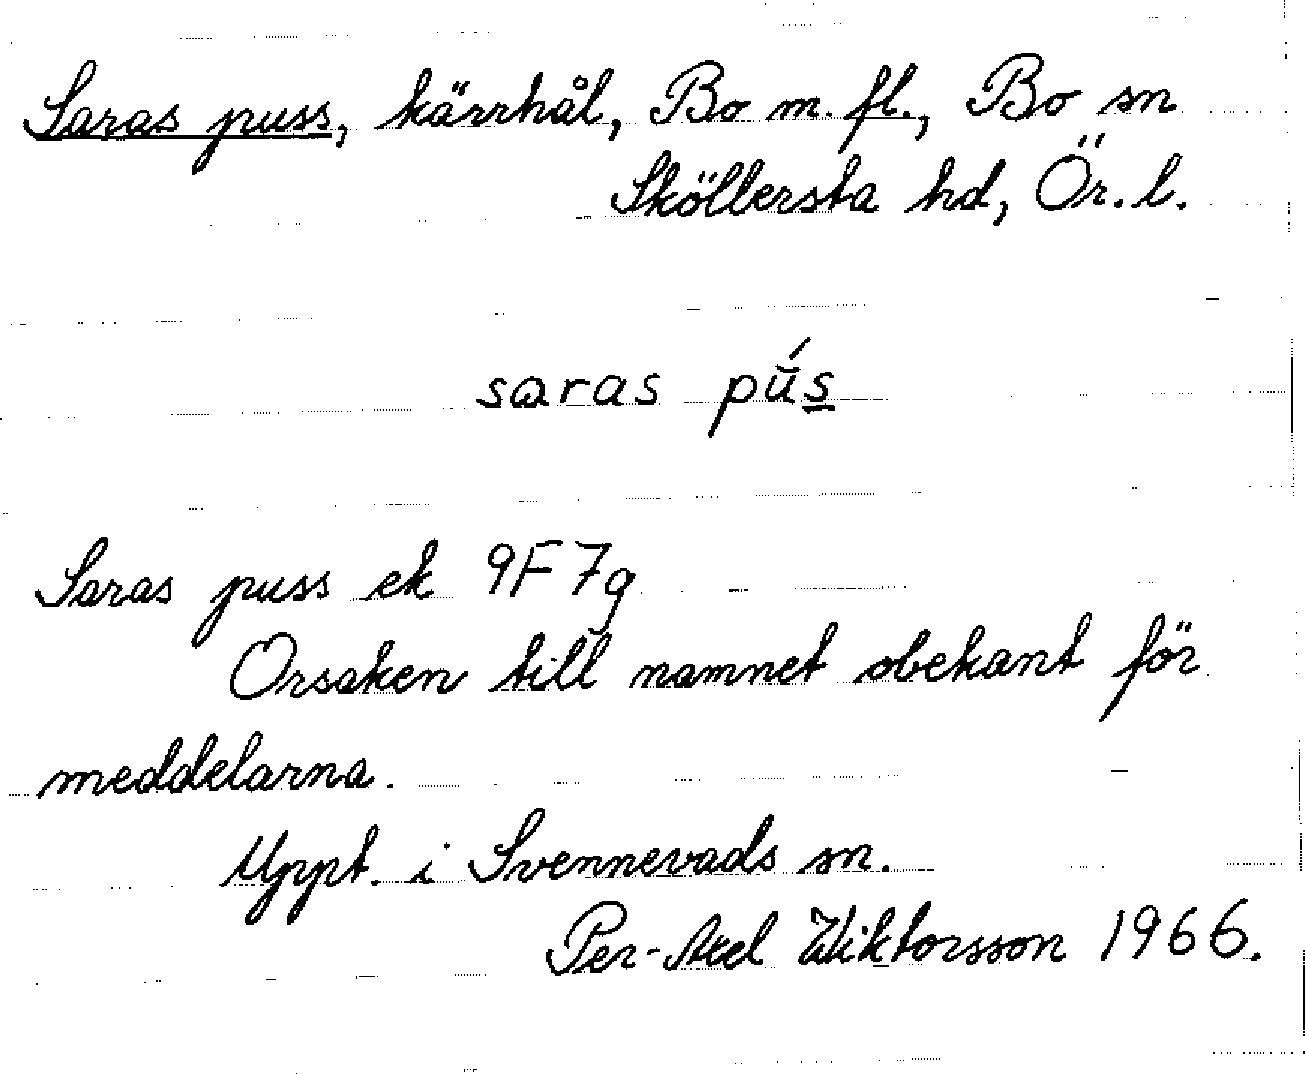 Saras puss, kärrhål, Bo m. fl., Bo sn
Sköllersta hd, Ör. l.
saras pú̆s̲
Saras puss ek 9F7g
Orsaken till namnet obekant för
meddelarna.
Uppt. i Svennevads sn.
Per-Axel Wiktorsson 1966.